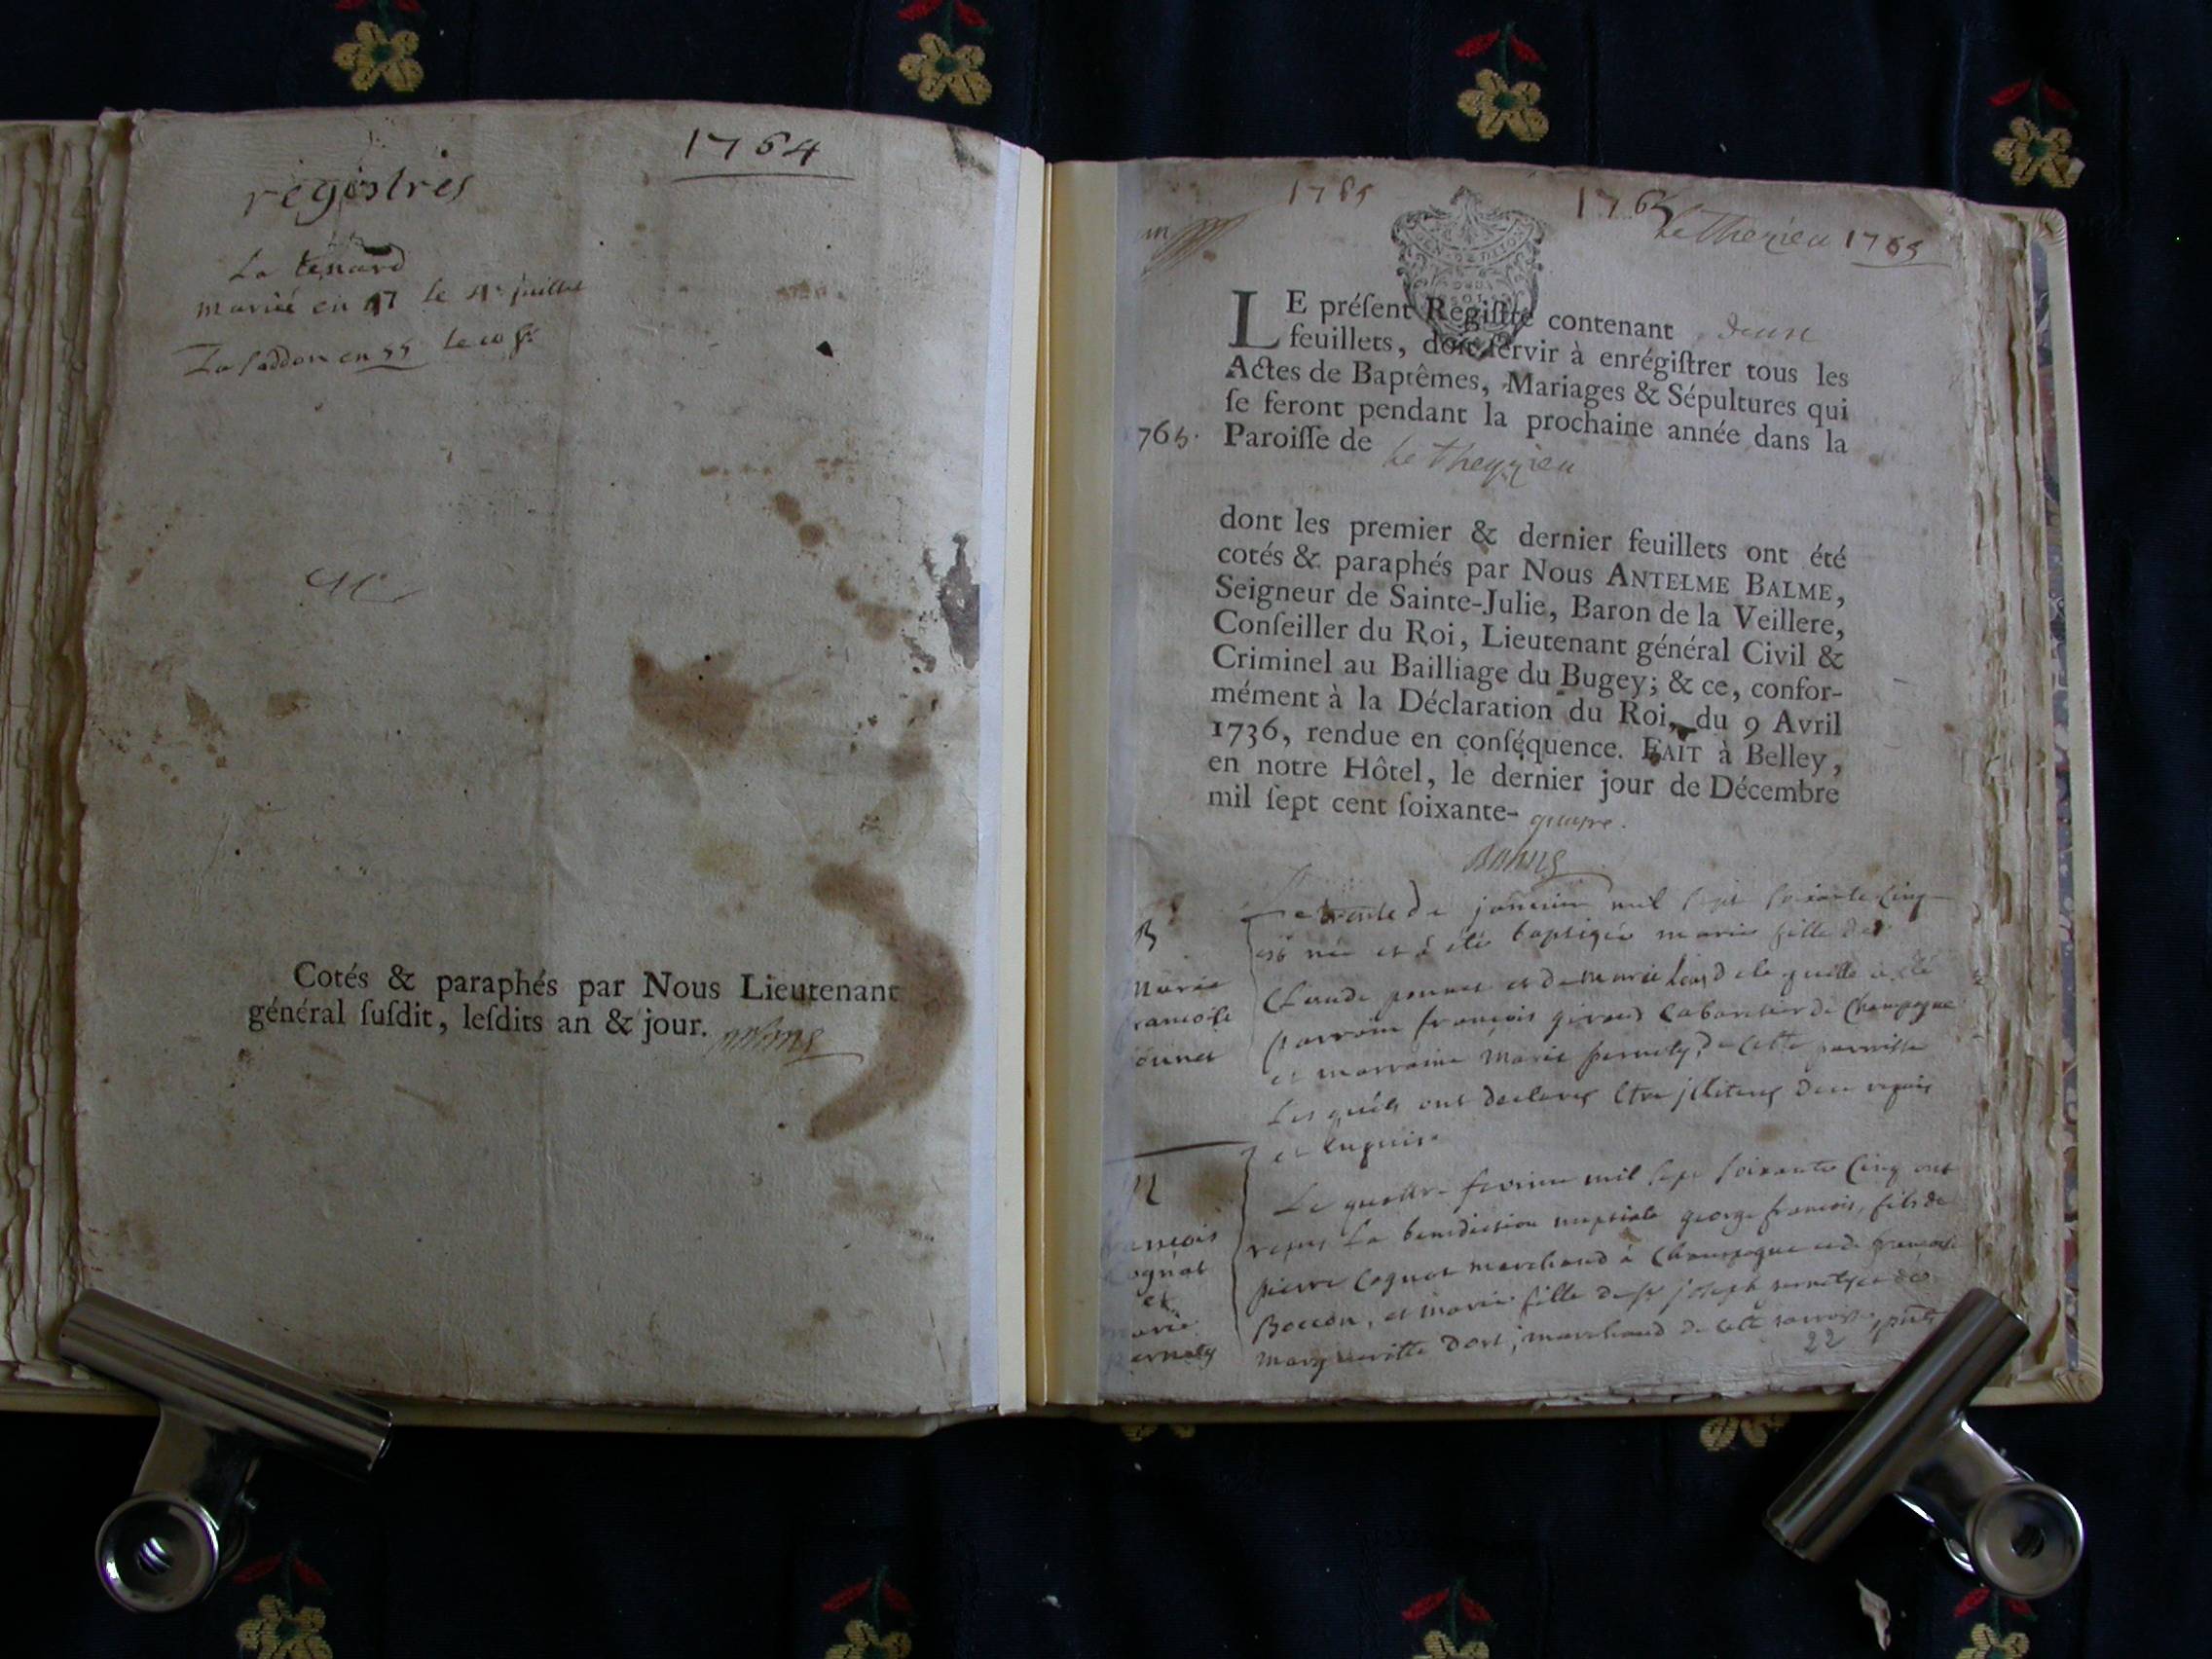 1764
registres
La tenard
mariée en 47 le 4e juillet
La Saddon en 55 le 10
Cotés & paraphés par Nous Lieutenant
général ſuſdit, leſdits an & jour.
1765 1765
1765
LE préſent Regiſtre contenant
feuillets, doit ſervir à enrégiſtrer tous les
Actes de Baptêmes, Mariages & Sépultures qui
ſe feront pendant la prochaine année dans la
765. Paroiſſe de
dont les premier & dernier feuillets ont été
cotés & paraphés par Nous ANTELME BALME,
Seigneur de Sainte-Julie, Baron de la Veillere,
Conſeiller du Roi, Lieutenant général Civil &
Criminel au Bailliage du Bugey; & ce, confor-
mément à la Déclaration du Roi, du 9 Avril
1736, rendue en conſéquence. FAIT à Belley,
en notre Hôtel, le dernier jour de Décembre
mil ſept cent ſoixante- quatre.
Balme
Le trente de janvier mil sept soixante cinq
est née et a été baptizée marie fille de
Claude et de marie la quelle a été
parrain françois giroud Cabaretier de Champagne
et marraine Marie pernety de cette parroisse
Les quels ont declarés etre illiterés de ce requis
et enquis.
B
Marie
rancoise
ounet
Le quattre fevrier mil sept soixante cinq ont
reçus la benediction nuptiale george françois, fils de
pierre Cognat marchand à Champagne et de françoise
Boccon, et marie fille de Sr joseph pernety et de
Margueritte Dort, marchand de cette parroisse
M
rancois
ognat
et
arie
ernety
22